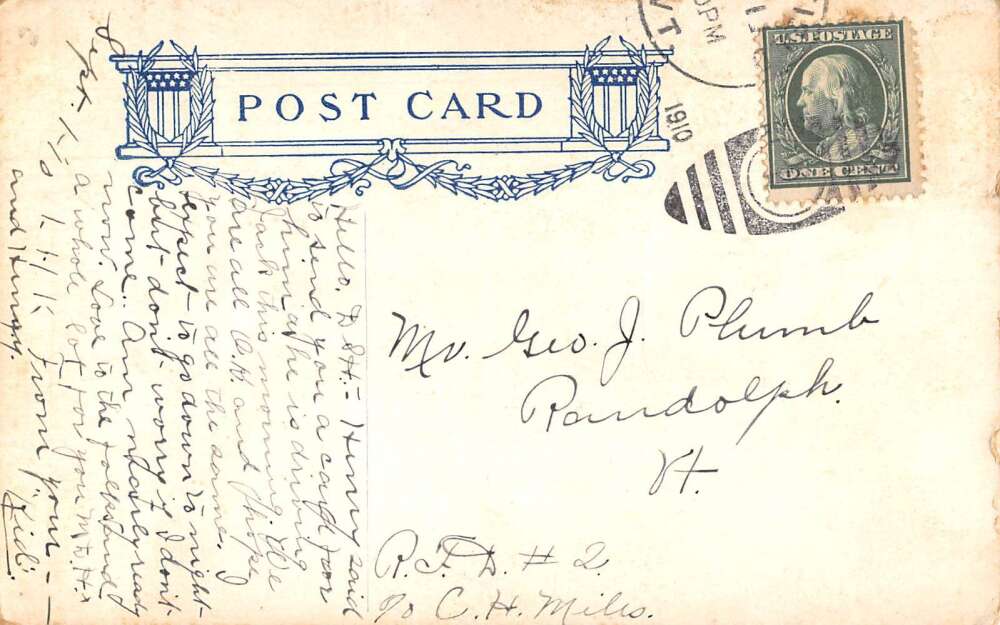 POST CARD
U.S. POSTAGE
ONE CENT
VT
0PM
1910
Mr. Geo. J. Plumb
Randolph.
Vt.
R.F.D. #2.
c/o C. H. Miles.
Hello. D. S. H. - Henry said
to send you a card for
him as he is driving
Jack this morning. We
are all O.K. and I hope
you are all the same. I
expect to go down to-night
but don't worry if I don't
come. Am nearly ready
now. Love to the folks and
a whole lot for you M.D.H.
From your -
and Henry. "Kid".